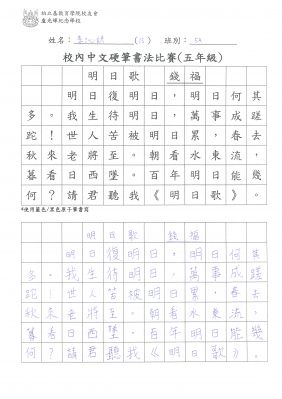 柏立基教育學院校友會
盧光輝紀念學校
姓名： (15) 班別： 5A
校內中文硬筆書法比賽(五年級)
明日歌 錢福
明日復明日，明日何其
多。我生待明日，萬事成蹉
跎！世人苦被明日累，春去
秋來老將至。朝看水東流，
暮看日西墜。百年明日能幾
何？請君聽我《明日歌》。
*使用藍色/黑色原子筆書寫
明日歌 錢福
明日復明日，明日何其
多。我生待明日，萬事成蹉
跎！世人苦被明日累，春去
秋來老將至。朝看水東流，
暮看日西墜。百年明日能幾
何？請君聽我《明日歌》。